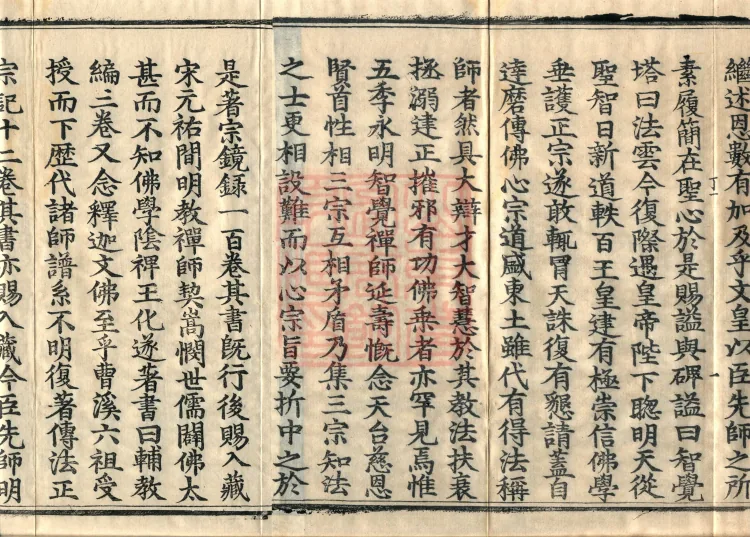 繼述恩數有加及乎文皇以臣先師之所
素履簡在聖心於是賜謚與碑謚曰智覺
塔曰法雲今復際遇皇帝陛下聰明天從
聖智日新道軼百王皇建有極崇信佛學
垂護正宗遂敢輒冒天誅復有懇請蓋自
達磨傳佛心宗道盛東土雖代有得法稱
師者然具大辯才大智慧於其教法扶衰
拯溺建正摧邪有功佛乗者亦罕見焉惟
五季永明智覺禪師延壽慨念天台慈恩
賢首性相三宗互相矛盾乃集三宗知法
之士更相設難而以心宗旨要折中之於
是著宗鏡録一百卷其書旣行後賜入藏
宋元祐間明教禪師契嵩憫世儒闢佛太
甚而不知佛學陰裨王化遂著書曰輔教
編三卷又念釋迦文佛至乎曹溪六祖受
授而下歷代諸師譜系不明復著傳法正
宗記十二卷其書亦賜入藏今臣先師明